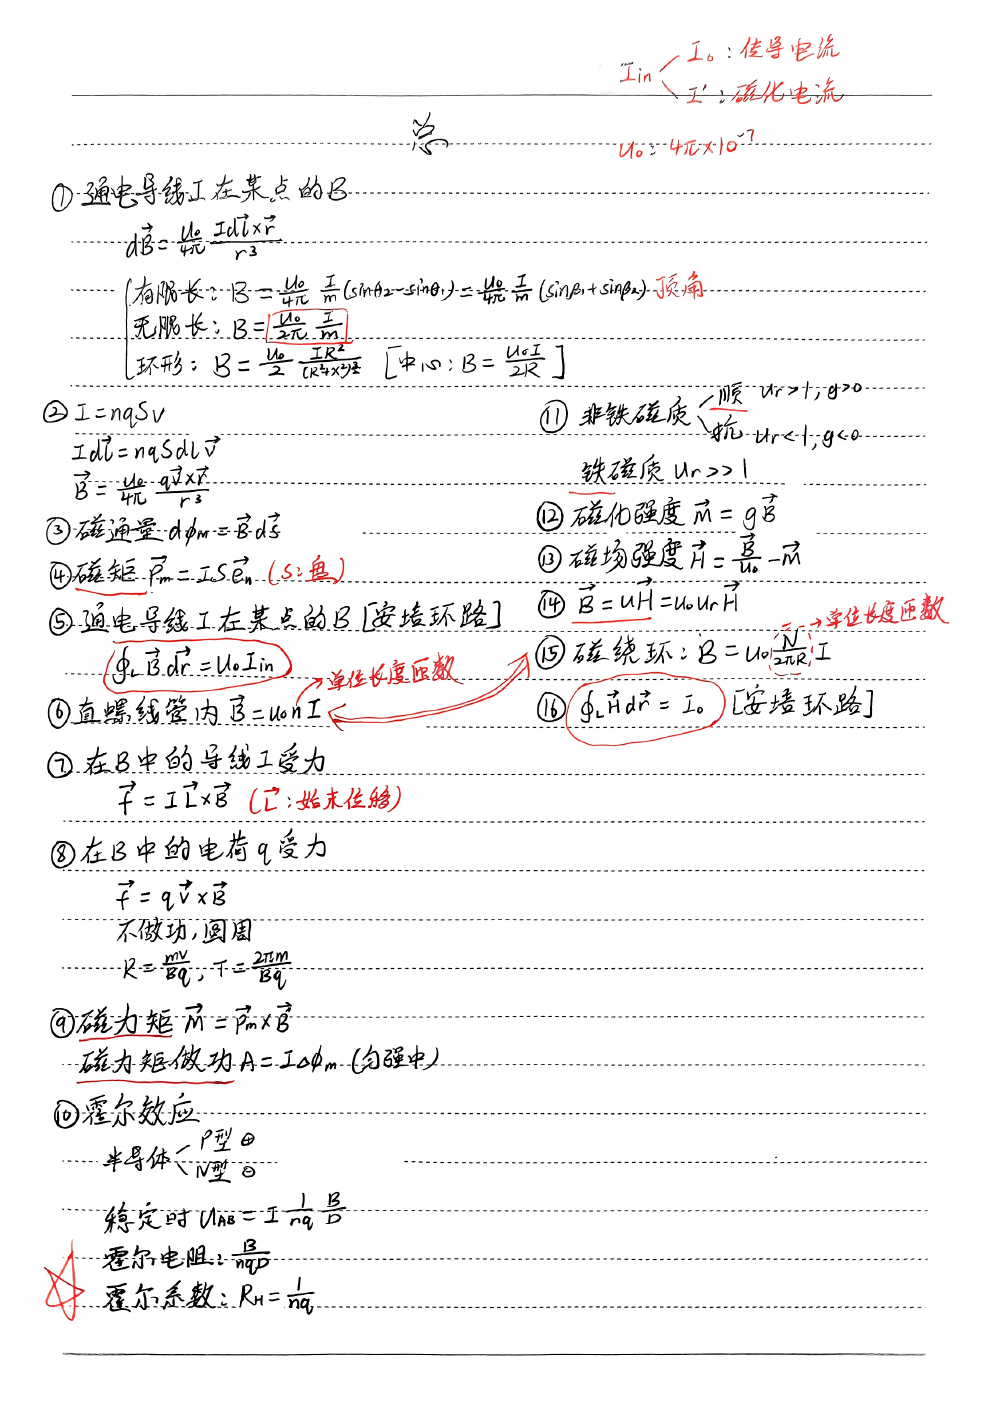 Iin
I₀：传导电流
I'：磁化电流
总
u₀：4π×10⁻⁷
① 通电导线I在某点的B
dB⃗ = u₀/4π Idl⃗×r⃗/r³
有限长：B = u₀/4π I/m (sinθ₂-sinθ₁) = u₀/4π I/m (sinβ₁+sinβ₂) 顶角
无限长：B = u₀/2π I/m
环形：B = u₀/2 IR²/(R²+x²)^(3/2) [中心：B = u₀I/2R]
② I=nqSv
Idl⃗=nqSdl v⃗
B⃗ = u₀/4π qv⃗×r⃗/r³
③ 磁通量 dφm=B⃗·ds⃗
④ 磁矩 P⃗m=ISe⃗n (S：面)
⑤ 通电导线I在某点的B [安培环路]
∮L B⃗dr⃗=u₀Iin
→单位长度匝数
⑥ 直螺线管内 B⃗=u₀nI
⑦ 在B中的导线I受力
f⃗=IL⃗×B⃗ (L⃗：始末位移)
⑧ 在B中的电荷q受力
f⃗=qv⃗×B⃗
不做功，圆周
R=mv/Bq，T=2πm/Bq
⑨ 磁力矩 M⃗=P⃗m×B⃗
磁力矩做功 A=IΔφm (匀强中)
⑩ 霍尔效应
半导体
P型 ⊕
N型 ⊖
稳定时 UAB=I 1/nq B/D
霍尔电阻：B/nqD
霍尔系数：RH=1/nq
⑪ 非铁磁质
顺 ur>1，g>0
抗 ur<1，g<0
铁磁质 ur>>1
⑫ 磁化强度 M⃗=gB⃗
⑬ 磁场强度 H⃗=B⃗/u₀-M⃗
⑭ B⃗=uH⃗=u₀urH⃗
→单位长度匝数
⑮ 磁绕环：B=u₀ N/2πR I
⑯ ∮L H⃗dr⃗=I₀ [安培环路]